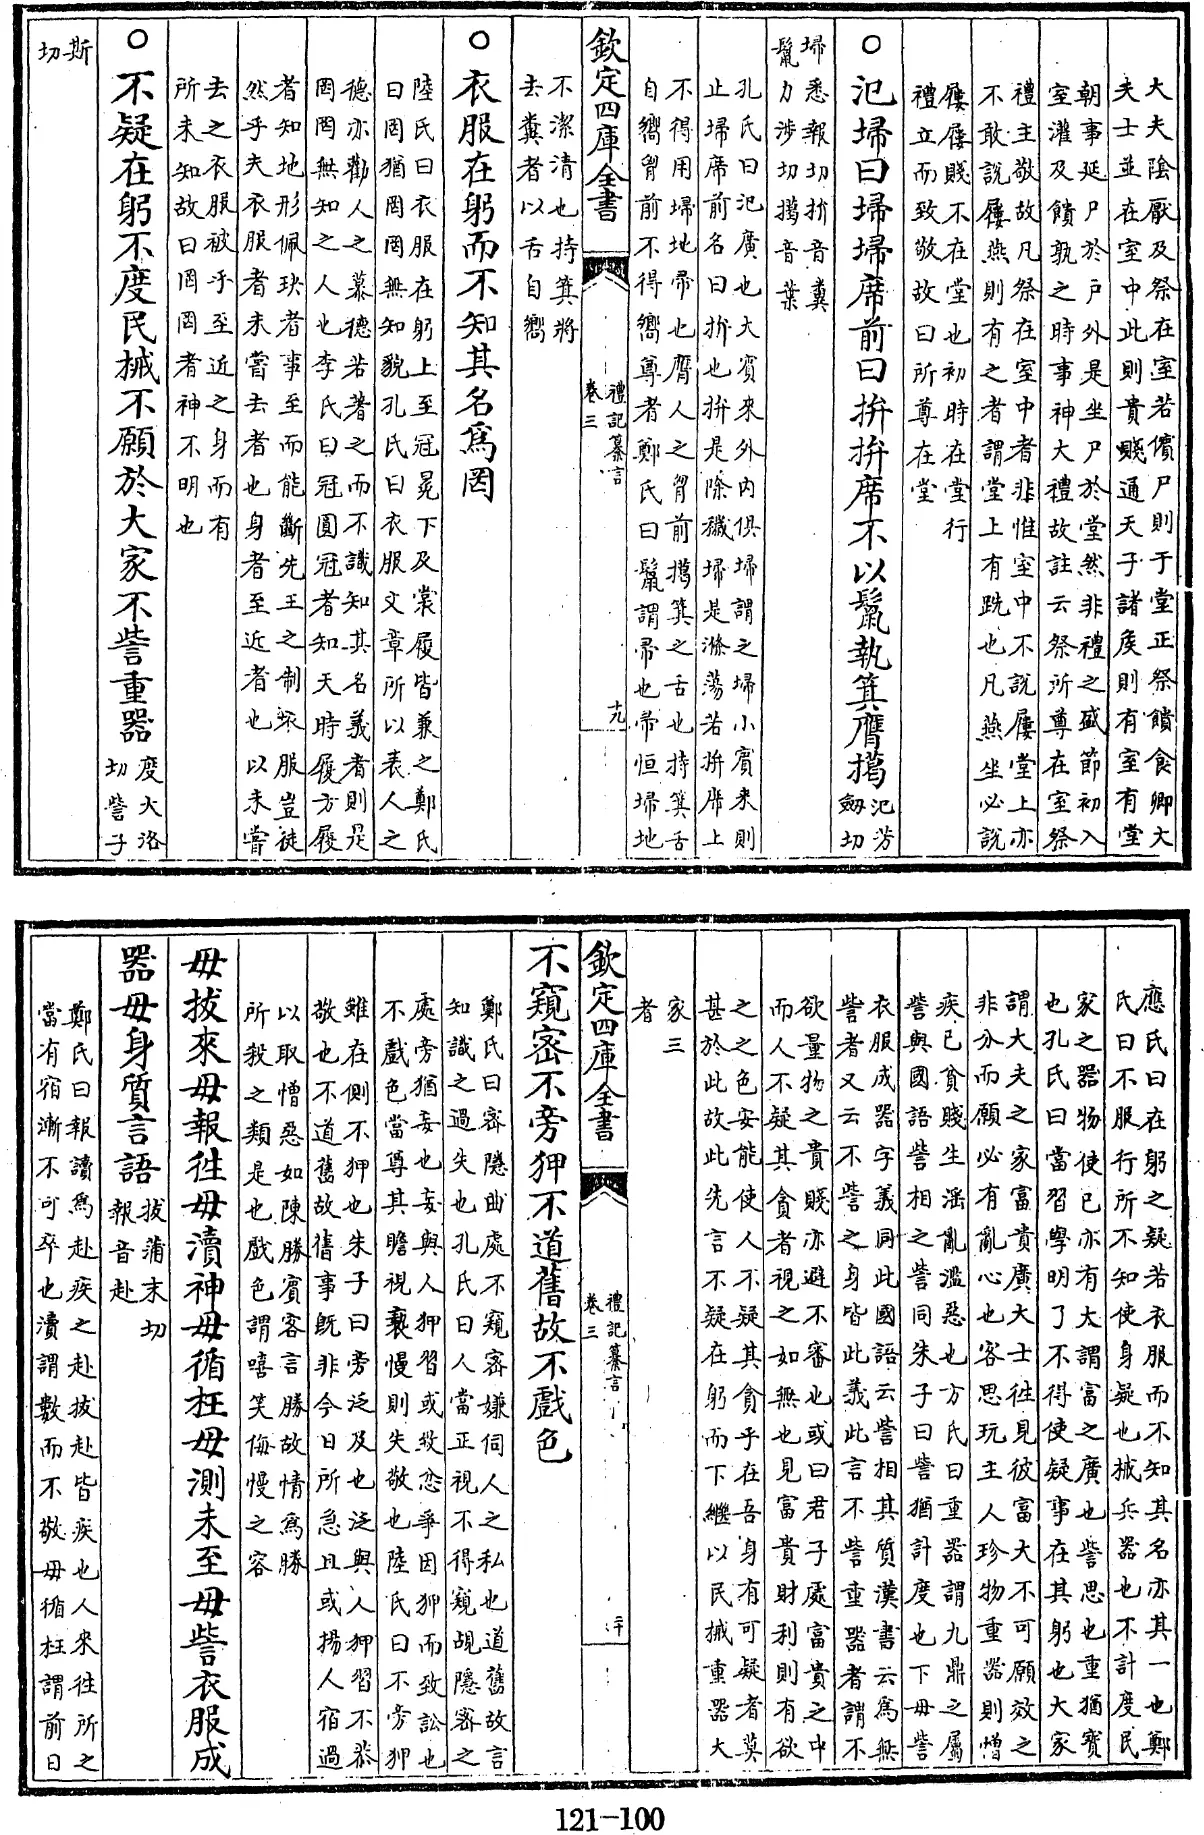 大夫陰厭及祭在室若儐尸則于堂正祭饋食卿大
夫士並在室中此則貴賤通天子諸侯則有室有堂
朝事延尸於戸外是坐尸於堂然非禮之盛節初入
室灌及饋孰之時事神大禮故註云祭所尊在室祭
禮主敬故凡祭在室中者非惟室中不説屨堂上亦
不敢説屨燕則有之者謂堂上有跣也凡燕坐必説
屨屨賤不在堂也初時在堂行
禮立而致敬故曰所尊在堂
○氾埽曰埽埽席前曰拚拚席不以鬛執箕膺擖
氾芳
劒切
埽悉報切拚音糞
鬛力涉切擖音葉
孔氏曰氾廣也大賓來外内俱埽謂之埽小賓来則
止埽席前名曰拚也拚是除穢埽是滌蕩若拚席上
不得用埽地帚也膺人之胷前擖箕之舌也持箕舌
自嚮胷前不得嚮尊者鄭氏曰鬛謂帚也帚恒埽地
欽定四庫全書
禮記纂言
卷三
十九
不潔清也持箕將
去糞者以舌自嚮
○衣服在躬而不知其名爲罔
陸氏曰衣服在躬上至冠冕下及裳履皆兼之鄭氏
曰罔猶罔罔無知貌孔氏曰衣服文章所以表人之
德亦勸人之慕德若著之而不識知其名義者則是
罔罔無知之人也李氏曰冠圓冠者知天時履方履
者知地形佩玦者事至而能斷先王之制衣服豈徒
然乎夫衣服者未嘗去者也身者至近者也以未嘗
去之衣服被乎至近之身而有
所未知故曰罔罔者神不明也
○不疑在躬不度民械不願於大家不訾重器
度大洛
切訾子
斯
切
應氏曰在躬之疑若衣服而不知其名亦其一也鄭
氏曰不服行所不知使身疑也械兵器也不計度民
家之器物使己亦有大謂富之廣也訾思也重猶寳
也孔氏曰當習學明了不得使疑事在其躬也大家
謂大夫之家富貴廣大士徃見彼富大不可願效之
非分而願必有亂心也客思玩主人珍物重器則憎
疾已貧賤生淫亂濫惡也方氏曰重器謂九鼎之屬
訾與國語訾相之訾同朱子曰訾猶計度也下毋訾
衣服成器字義同此國語云訾相其質漢書云為無
訾者又云不訾之身皆此義此言不訾重器者謂不
欲量物之貴賤亦避不審也或曰君子處富貴之中
而人不疑其貪者視之如無也見富貴財利則有欲
之之色安能使人不疑其貪乎在吾身有可疑者莫
甚於此故此先言不疑在躬而下繼以民械重器大
家三
者
欽定四庫全書
禮記纂言
卷三
二十
不窺密不旁狎不道舊故不戲色
鄭氏曰密隱曲處不窺密嫌伺人之私也道舊故言
知識之過失也孔氏曰人當正視不得窺覘隱密之
處旁猶妄也妄與人狎習或致忿爭因狎而致訟也
不戲色當尊其瞻視褻慢則失敬也陸氏曰不旁狎
雖在側不狎也朱子曰旁泛及也泛與人狎習不恭
敬也不道舊故舊事旣非今日所急且或揚人宿過
以取憎惡如陳勝賓客言勝故情為勝
所殺之類是也戲色謂嘻笑侮慢之容
毋拔來毋報徃毋瀆神毋循枉毋測未至毋訾衣服成
器毋身質言語
拔蒲末切
報音赴
鄭氏曰報讀爲赴疾之赴拔赴皆疾也人來徃所之
當有宿漸不可卒也瀆謂數而不敬毋循枉謂前日
121-100